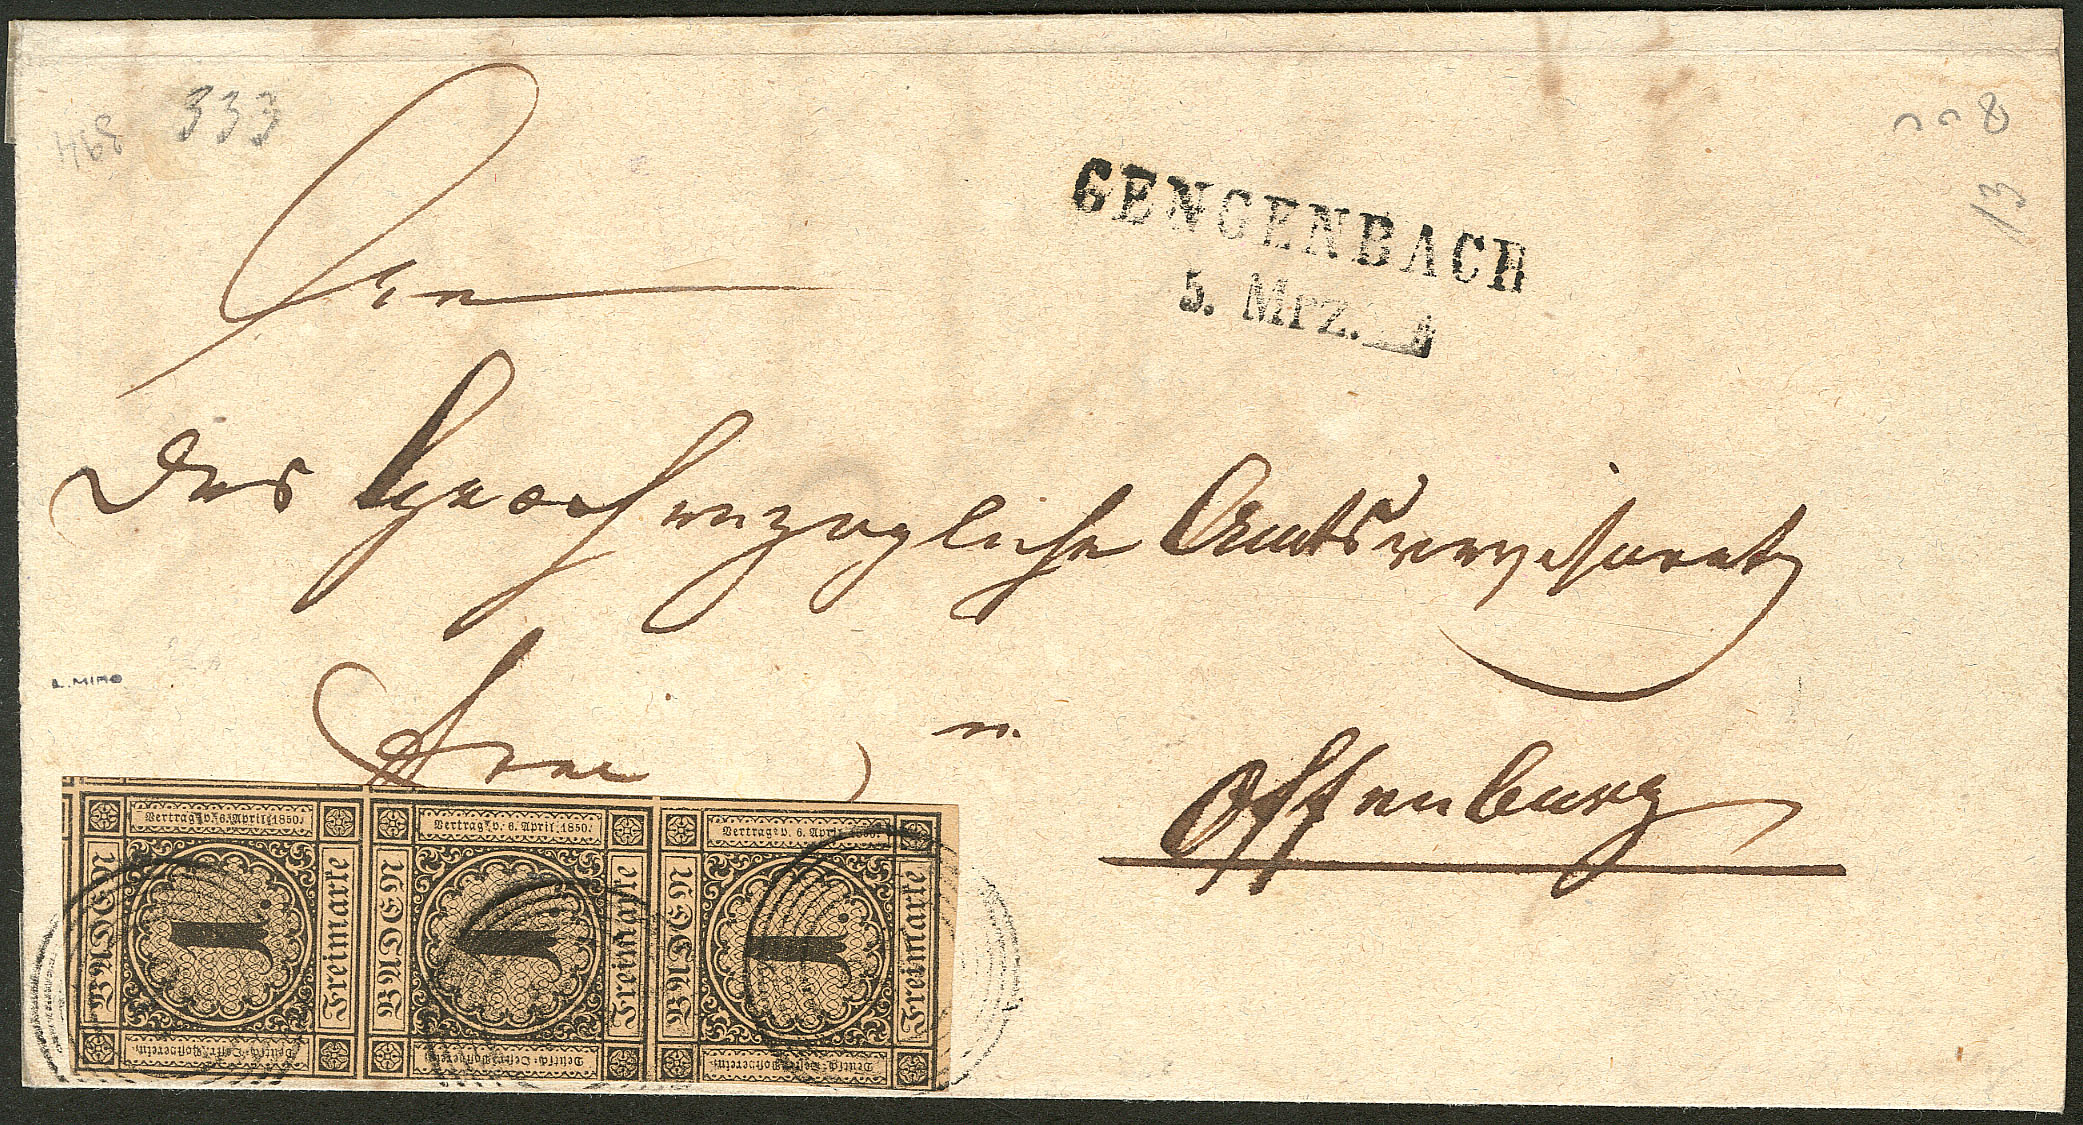 468
333
8
13
GENGENBACH
5. Mrz.
An
Das Großherzogliche Amtsrevisorat
L. MIRO
Offenburg
Vertrag v. 6. April 1850.
BADEN
1.
Freimarke
Deutsch-Oestr. Postverein.
Vertrag v. 6. April 1850.
BADEN
1.
Freimarke
Deutsch-Oestr. Postverein.
Vertrag v. 6. April 1850.
BADEN
1.
Freimarke
Deutsch-Oestr. Postverein.